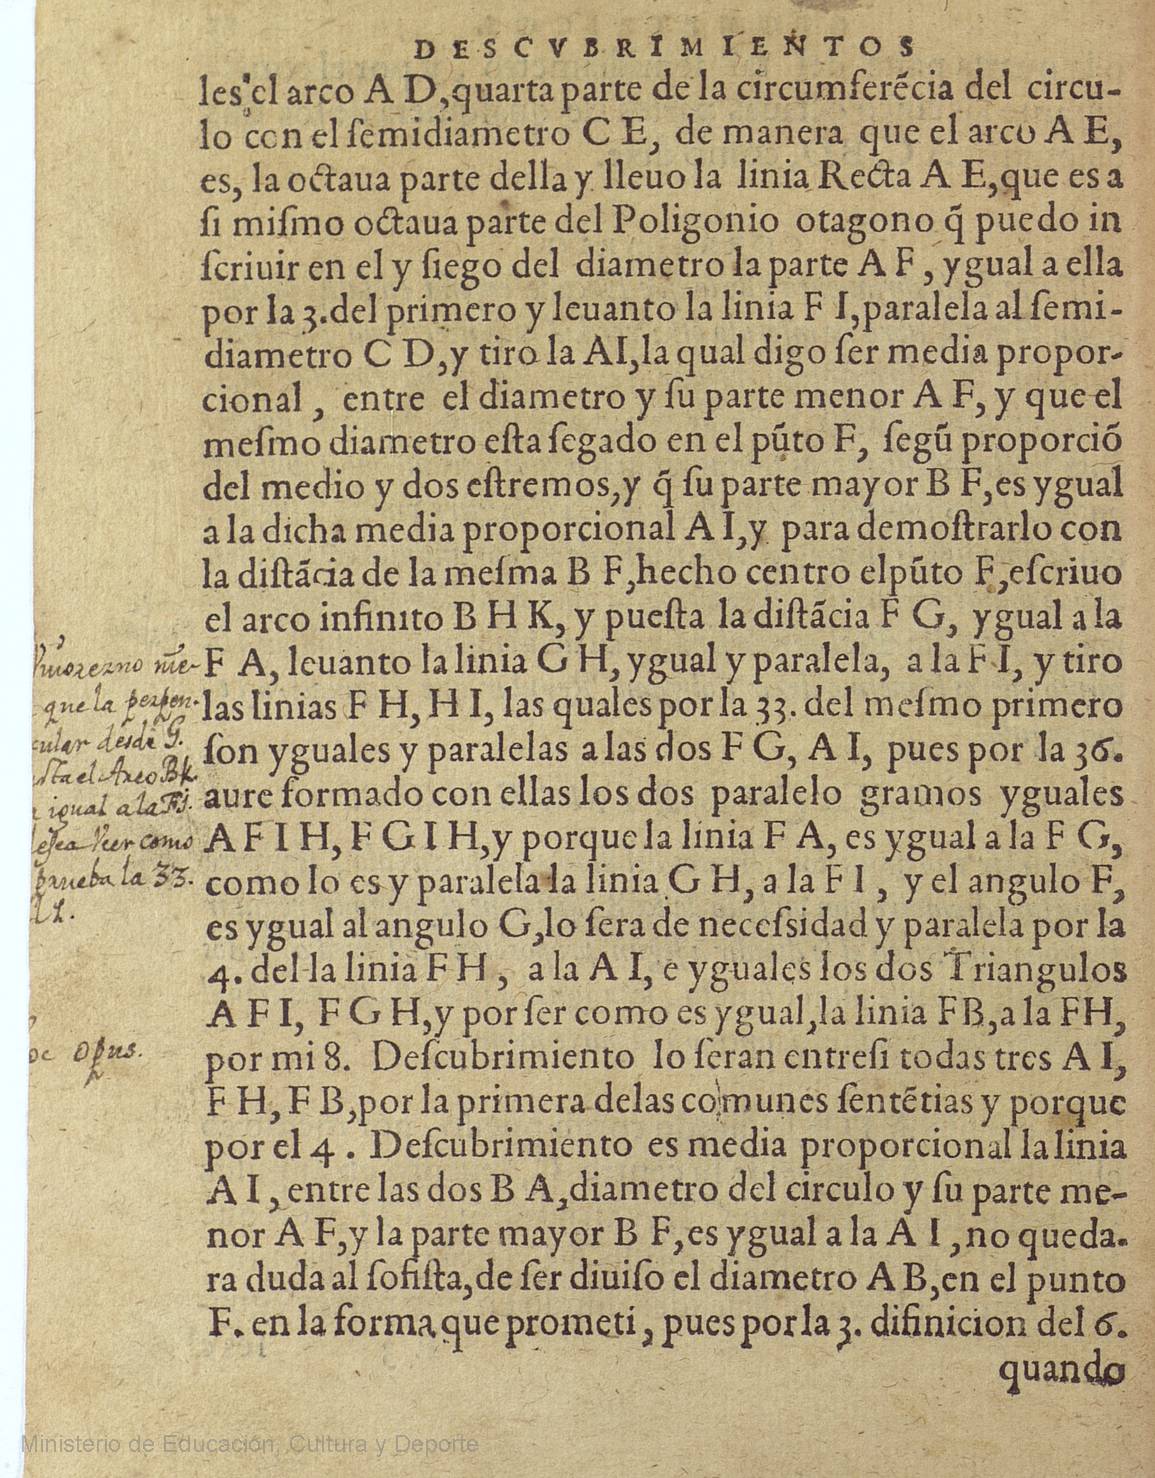 DESCVBRIMIENTOS
les el arco A D, quarta parte de la circumferẽcia del circu-
lo con el ſemidiametro C E, de manera que el arco A E,
es, la octaua parte della y lleuo la linia Recta A E, que es a
ſi miſmo octaua parte del Poligonio otagono q̃ puedo in
ſcriuir en el y ſiego del diametro la parte A F, ygual a ella
por la 3. del primero y leuanto la linia F I, paralela al ſemi-
diametro C D, y tiro la A I, la qual digo ſer media propor-
cional, entre el diametro y ſu parte menor A F, y que el
meſmo diametro eſta ſegado en el pũto F, ſegũ proporciõ
del medio y dos eſtremos, y q̃ ſu parte mayor B F, es ygual
a la dicha media proporcional A I, y para demoſtrarlo con
la diſtãcia de la meſma B F, hecho centro el pũto F, eſcriuo
el arco infinito B H K, y pueſta la diſtãcia F G, ygual a la
F A, leuanto la linia G H, ygual y paralela, a la F I, y tiro
las linias F H, H I, las quales por la 33. del meſmo primero
ſon yguales y paralelas a las dos F G, A I, pues por la 36.
aure formado con ellas los dos paralelo gramos yguales
A F I H, F G I H, y porque la linia F A, es ygual a la F G,
como lo es y paralela la linia G H, a la F I, y el angulo F,
es ygual al angulo G, lo ſera de neceſsidad y paralela por la
4. del la linia F H, a la A I, e yguales los dos Triangulos
A F I, F G H, y por ſer como es ygual, la linia F B, a la F H,
por mi 8. Deſcubrimiento lo ſeran entreſi todas tres A I,
F H, F B, por la primera delas comunes ſentẽtias y porque
por el 4. Deſcubrimiento es media proporcional la linia
A I, entre las dos B A, diametro del circulo y ſu parte me-
nor A F, y la parte mayor B F, es ygual a la A I, no queda-
ra duda al ſofiſta, de ſer diuiſo el diametro A B, en el punto
F. en la forma que prometi, pues por la 3. difinicion del 6.
quando
que la perpen-
cular desde G.
el Arco Bk
igual a la FI.
Ver como
prueba la 33.
opus.
Ministerio de Educación, Cultura y Deporte